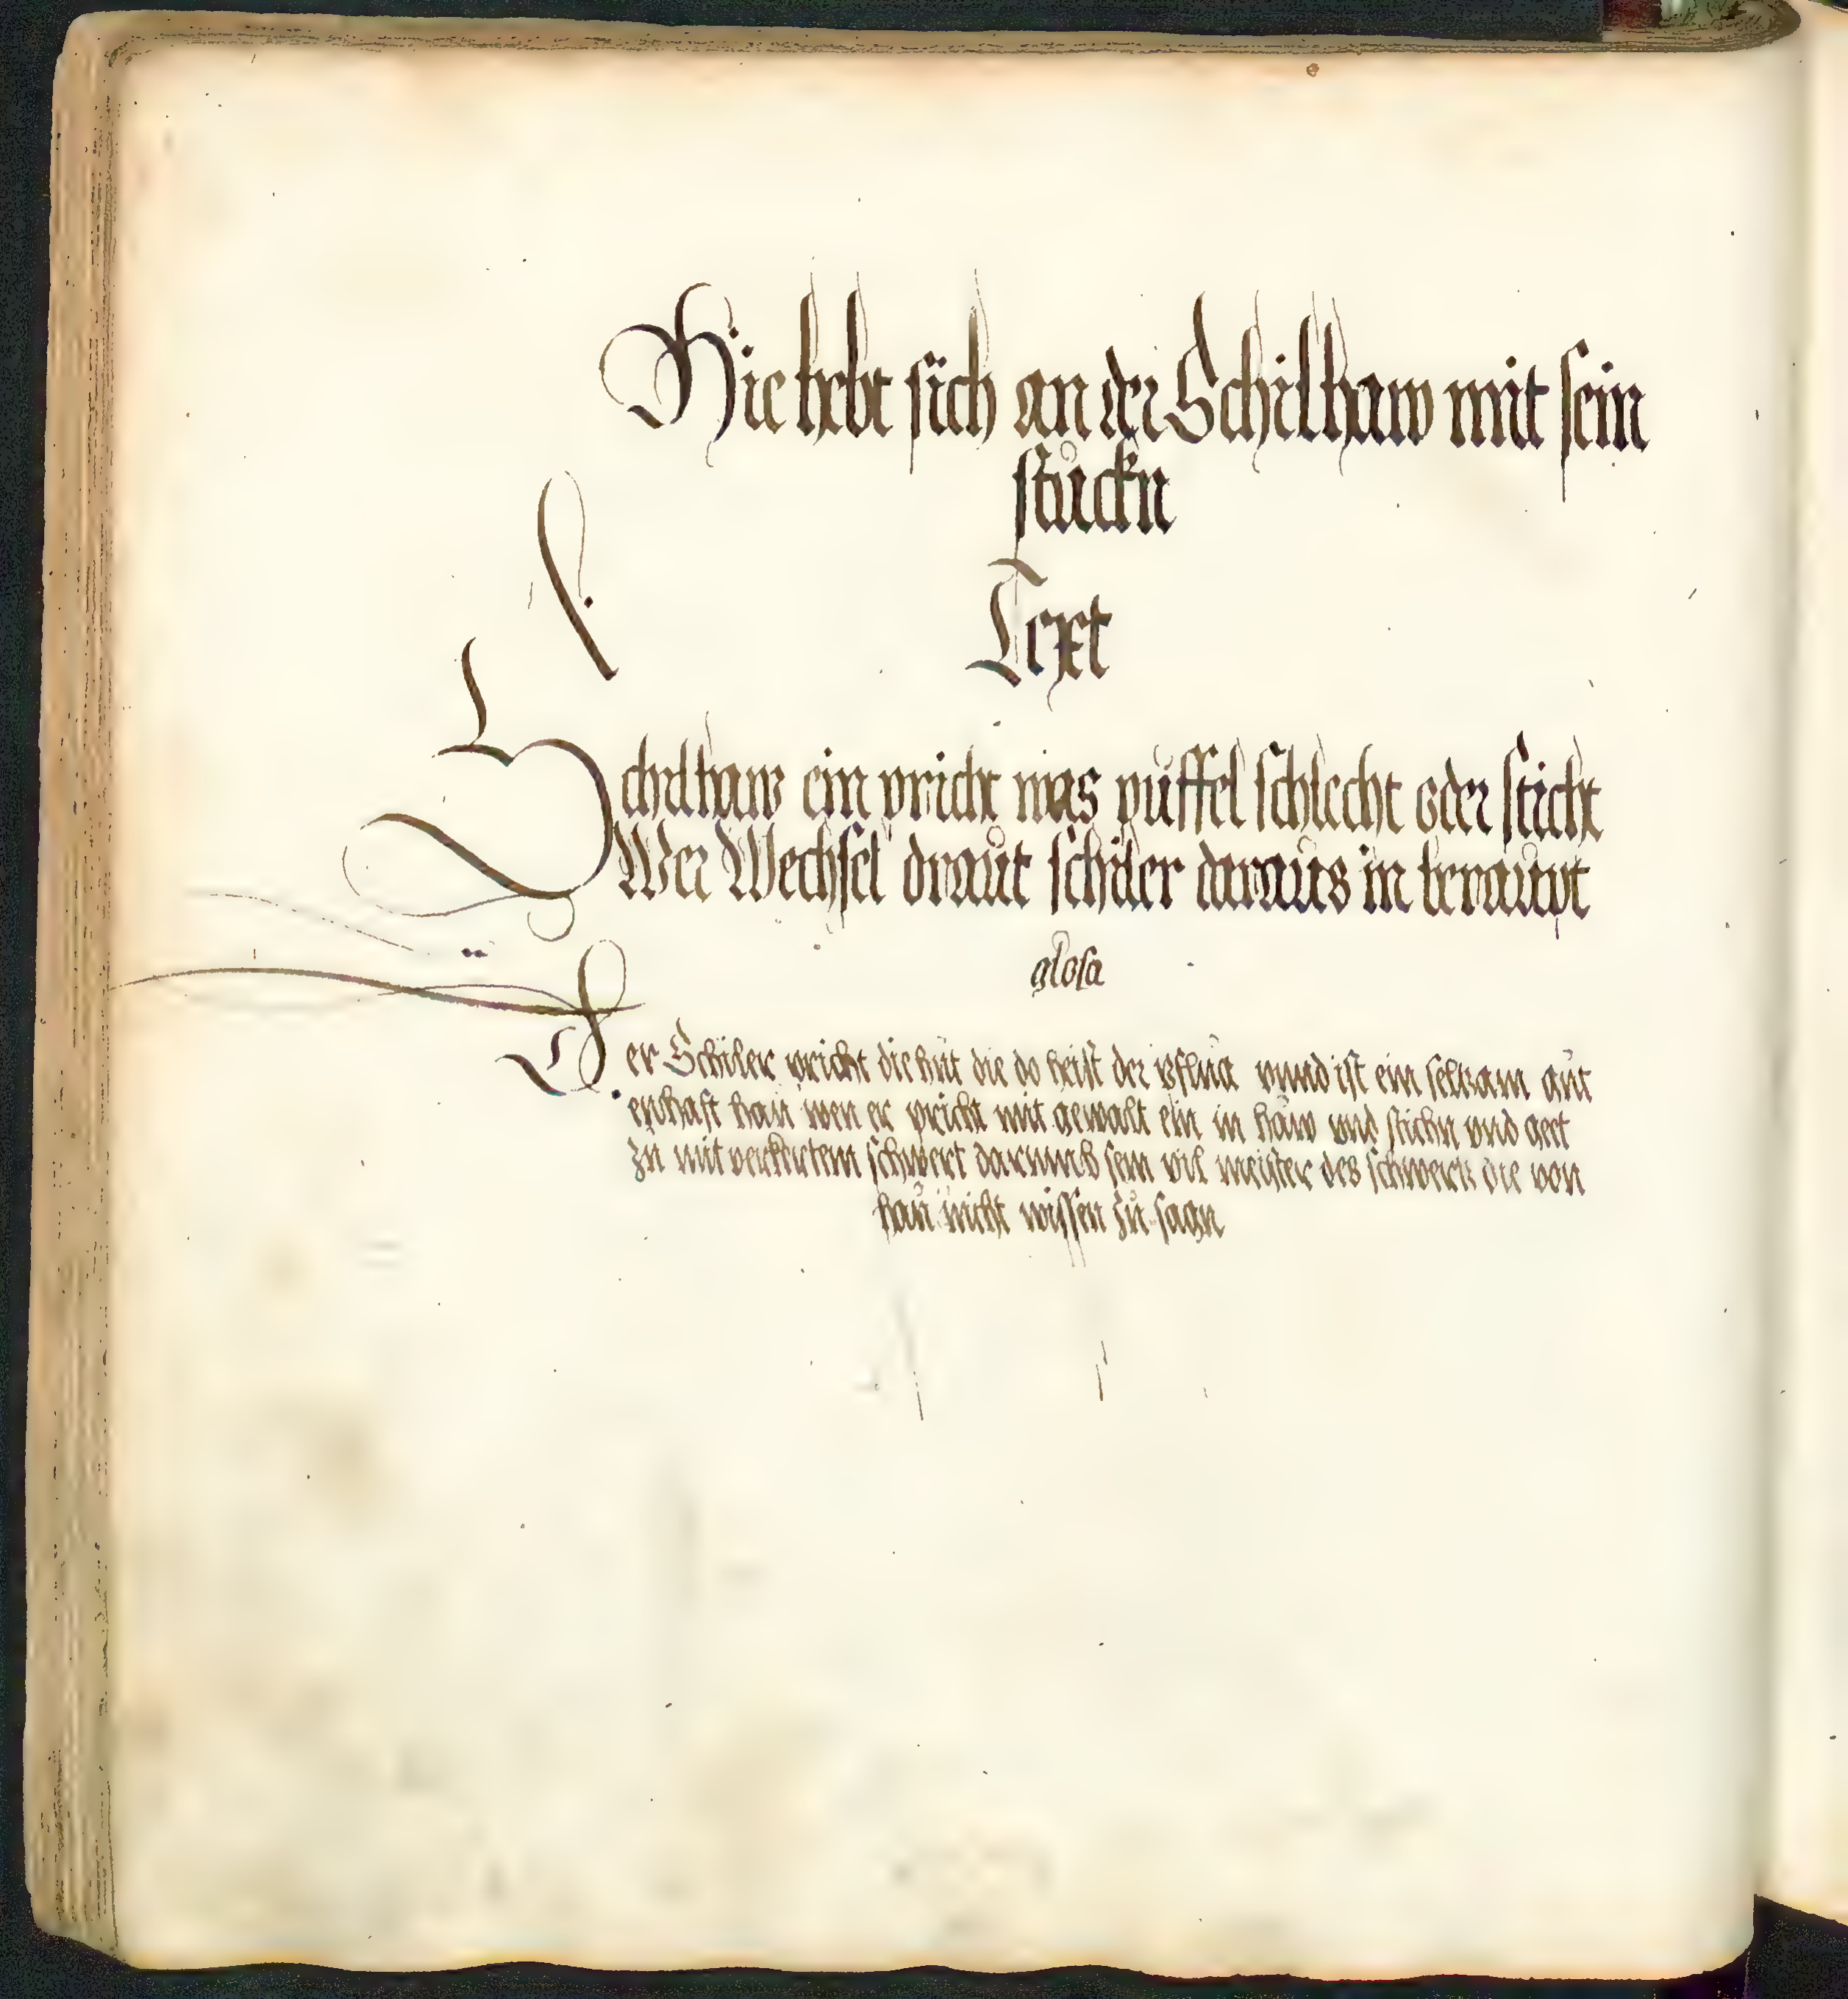 Hie hebt sich an der Schilhaw mit sein
stuckn
Text
Schilhaw ein pricht was puffel schlecht oder sticht
Wer Wechsel draut schiler daraus in beraupt
glosa
Der Schiler pricht die hut die do heist der pflug vnnd ist ein seltzam gut
enhaft hau wen er pricht mit gewalt ein in haw vnd stichn vnd get
zu mit verkertem schwert darumb sein vil meister des schwerts die von
hau nicht wissen zu sagn